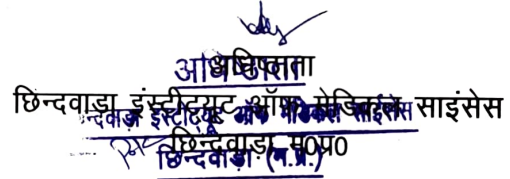 अधिष्ठाता
छिन्दवाड़ा इंस्टीट्यूट ऑफ मेडिकल साइंसेस
छिन्दवाड़ा म0प्र0
अधिष्ठाता
छिन्दवाड़ा इंस्टीट्यूट ऑफ मेडिकल साईंसेस
छिन्दवाड़ा (म.प्र.)